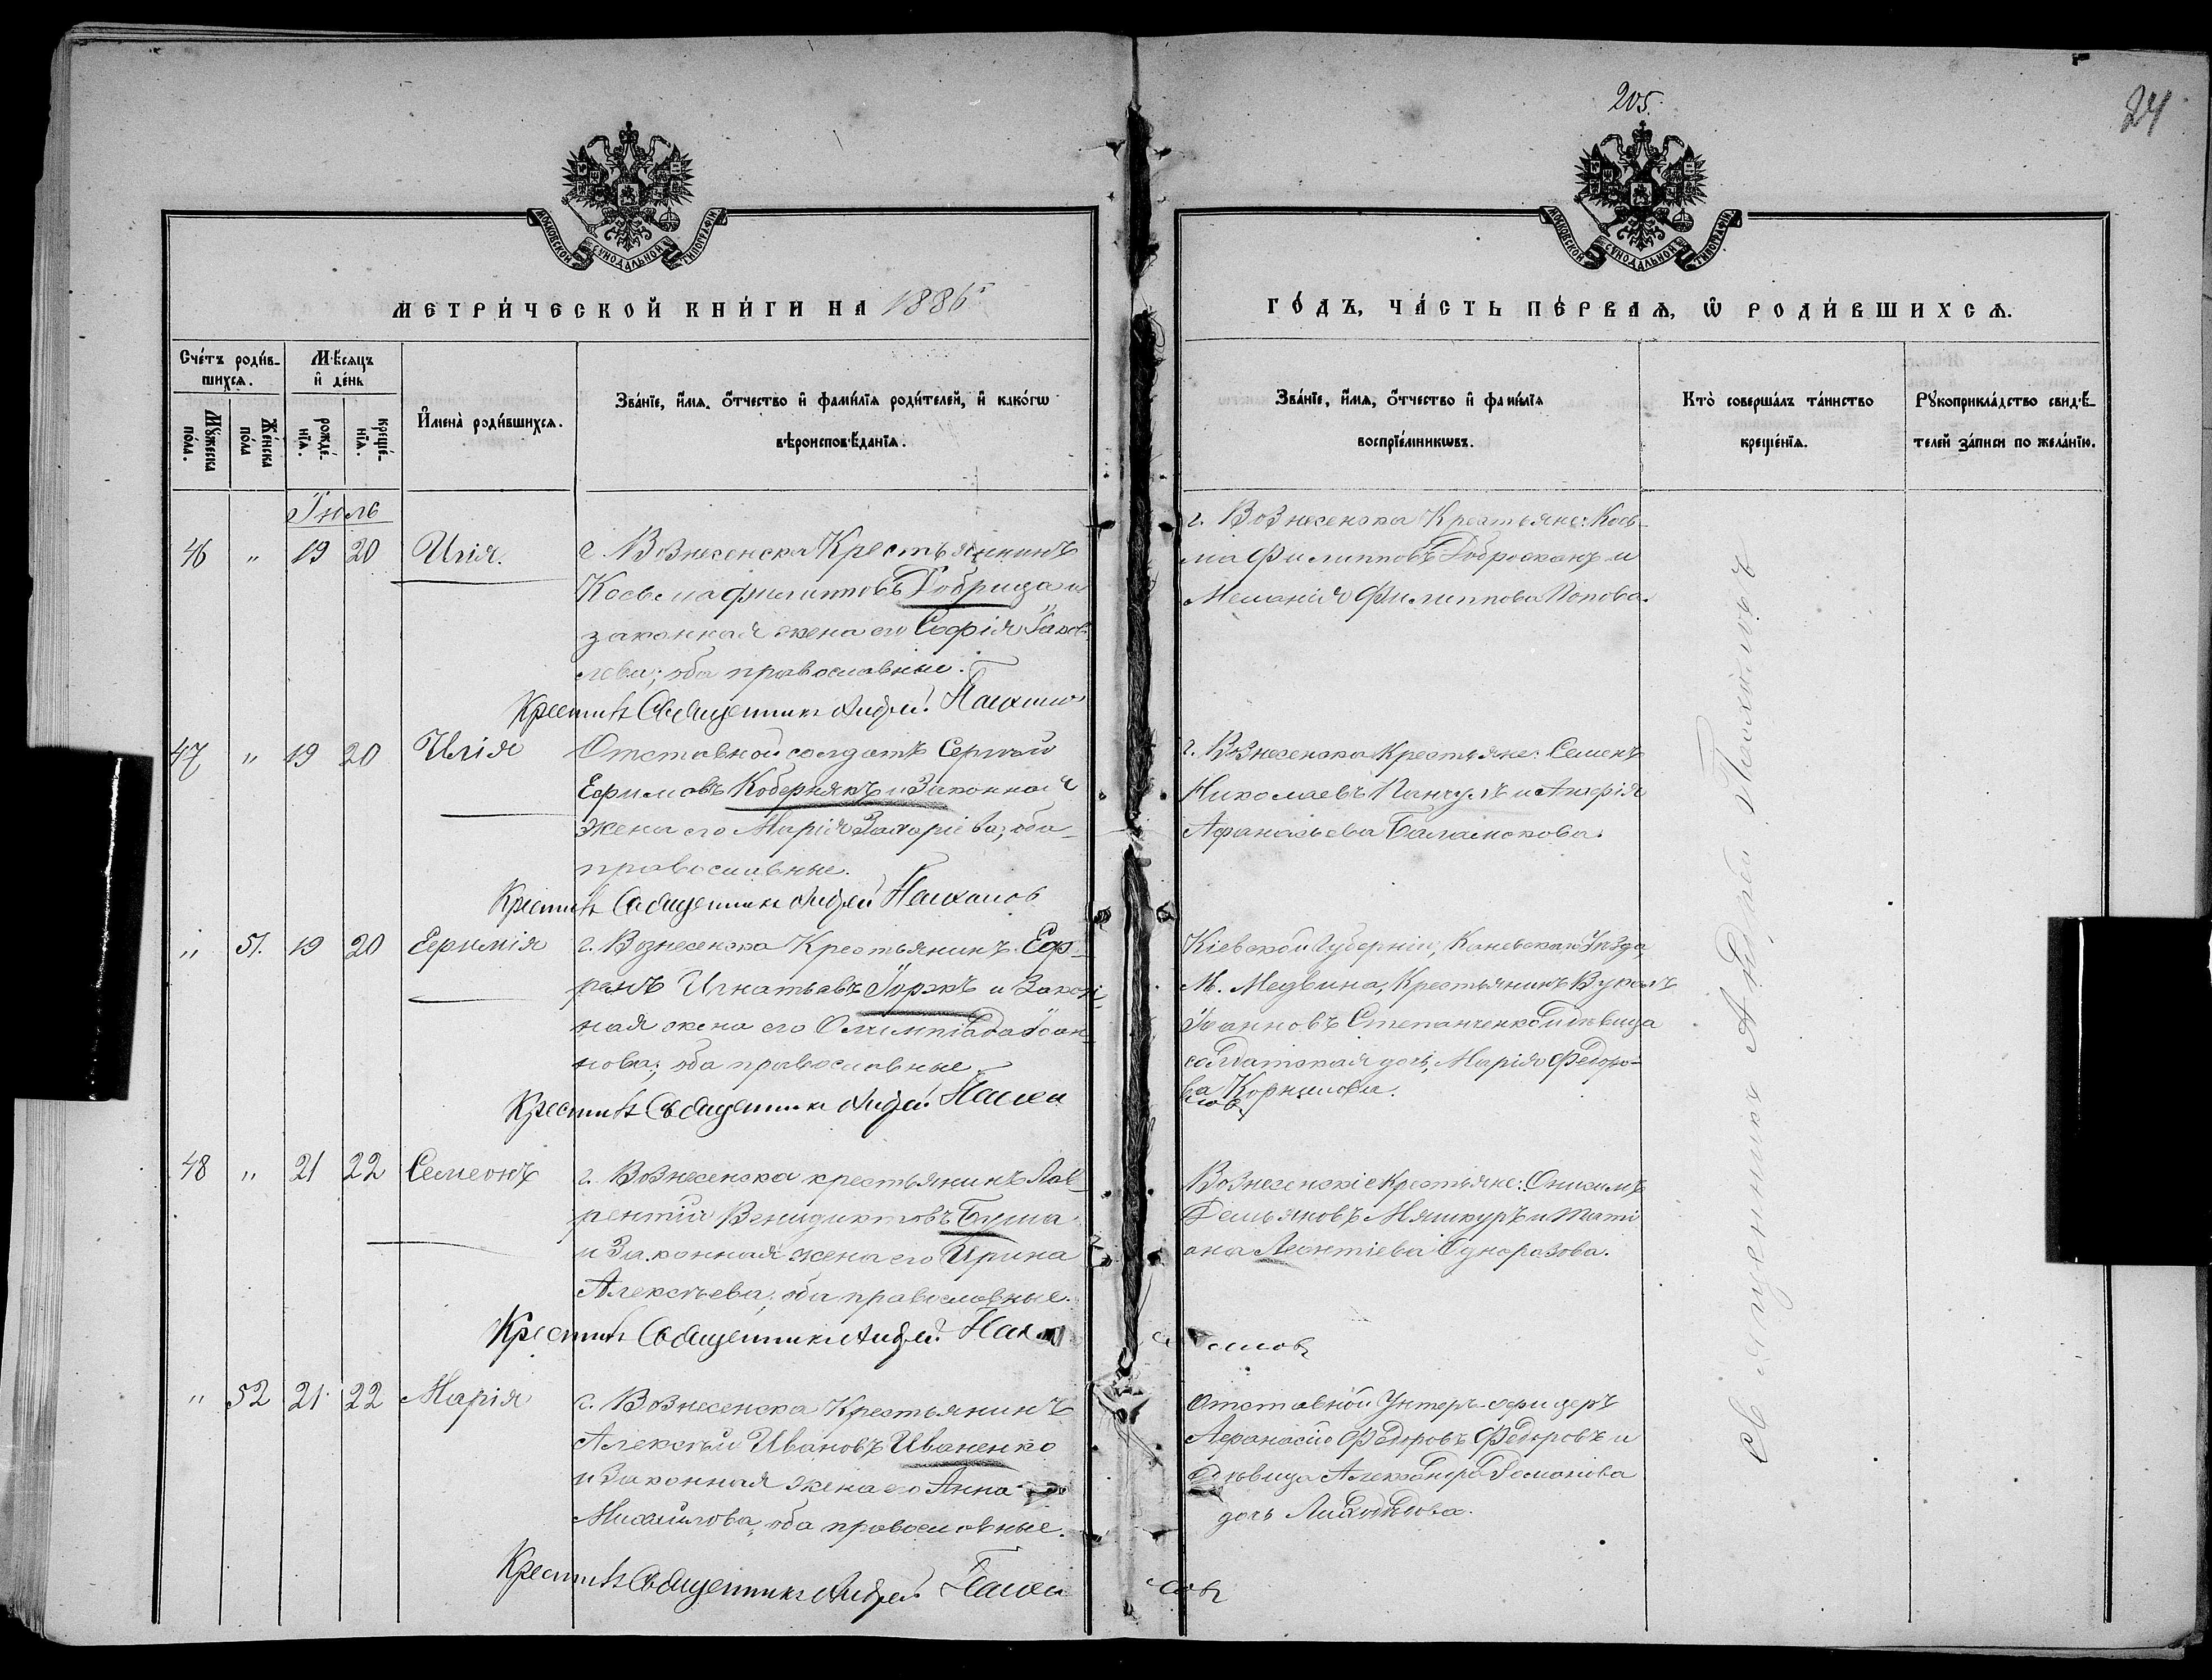 205.
24
МОСКОВСКОЙ СѴНОДАЛЬНОЙ ТИПОГРАФІИ
МОСКОВСКОЙ СѴНОДАЛЬНОЙ ТИПОГРАФІИ
МЕТРИ́ЧЕСКОЙ КНИ́ГИ НА 1886
ГО́ДЪ, ЧА́СТЬ ПЕ́РВАѦ, Ѡ҆ РОДИ́ВШИХСѦ.
Сче́тъ роди́в-
шихсѧ.
Мꙋжеска по́ла.
Же́нска по́ла
Мѣ́сѧцъ
и҆ де́нь
рожде́-
нїѧ.
креще́-
нїѧ.
И҆мена̀ роди́вшихсѧ.
Зва́нїе, и҆́мѧ, ѻ҆́тчество и҆ фами́лїѧ роди́телей, и҆ како́гѡ
вѣроисповѣ́данїѧ.
Зва́нїе, и҆́мѧ, ѻ҆́тчество и҆ фами́лїѧ
воспрїе́мникѡвъ.
Кто̀ соверша́лъ та́инство
креще́нїѧ.
Рꙋкоприкла́дство свидѣ́-
телей за́писи по жела́нїю.
Іюль
46 " 19 20 Илія.
г. Вознесенска Крестьянинъ
Косьма Филипповъ Добрица и
законная жена его Софія Яков-
лева; оба православные.
Крестилъ Священникъ Андрей
г. Вознесенска Крестьяне: Кось-
ма Филипповъ Доброскокъ и
Меланія Филиппова Попова.
47 " 19 20 Илія
Отставной солдатъ Сергѣй
Ефимовъ Кобернякъ и Законная
жена его Марія Захаріева; оба
православные.
Крестилъ Священникъ Андрей
г. Вознесенска Крестьяне: Семенъ
Николаевъ Панчулъ и
Афанасьева
" 51. 19 20 Евфимія
г. Вознесенска Крестьянинъ Еф-
ремъ Игнатьевъ и Закон-
ная жена его Олимпіада Іоан-
нова; оба православные.
Крестилъ Священникъ Андрей
Кіевской Губерніи, Каневскаго Уѣзда,
М. Медвина, Крестьянинъ Вуколъ
Іоанновъ Степанченко и дѣвица
солдатская дочь, Марія Федоро-
ва Корнилова.
48 " 21 22 Симеонъ
г. Вознесенска крестьянинъ Лав-
рентій Венидиктовъ
и Законная жена его Ирина
Алексѣева; оба православные.
Крестилъ Священникъ Андрей
Вознесенскіе Крестьяне: Онисимъ
Демьяновъ и Тати-
ана Леонтіева Одноразова.
" 52 21 22 Марія
г. Вознесенска Крестьянинъ
Алексѣй Ивановъ Иваненко
и Законная жена его Анна
Михайлова, оба православные.
Крестилъ Священникъ Андрей
Отставной Унтеръ-офицеръ
Афанасій Федоровъ Федоровъ и
Дѣвица Александра
дочь
Священникъ Андрей